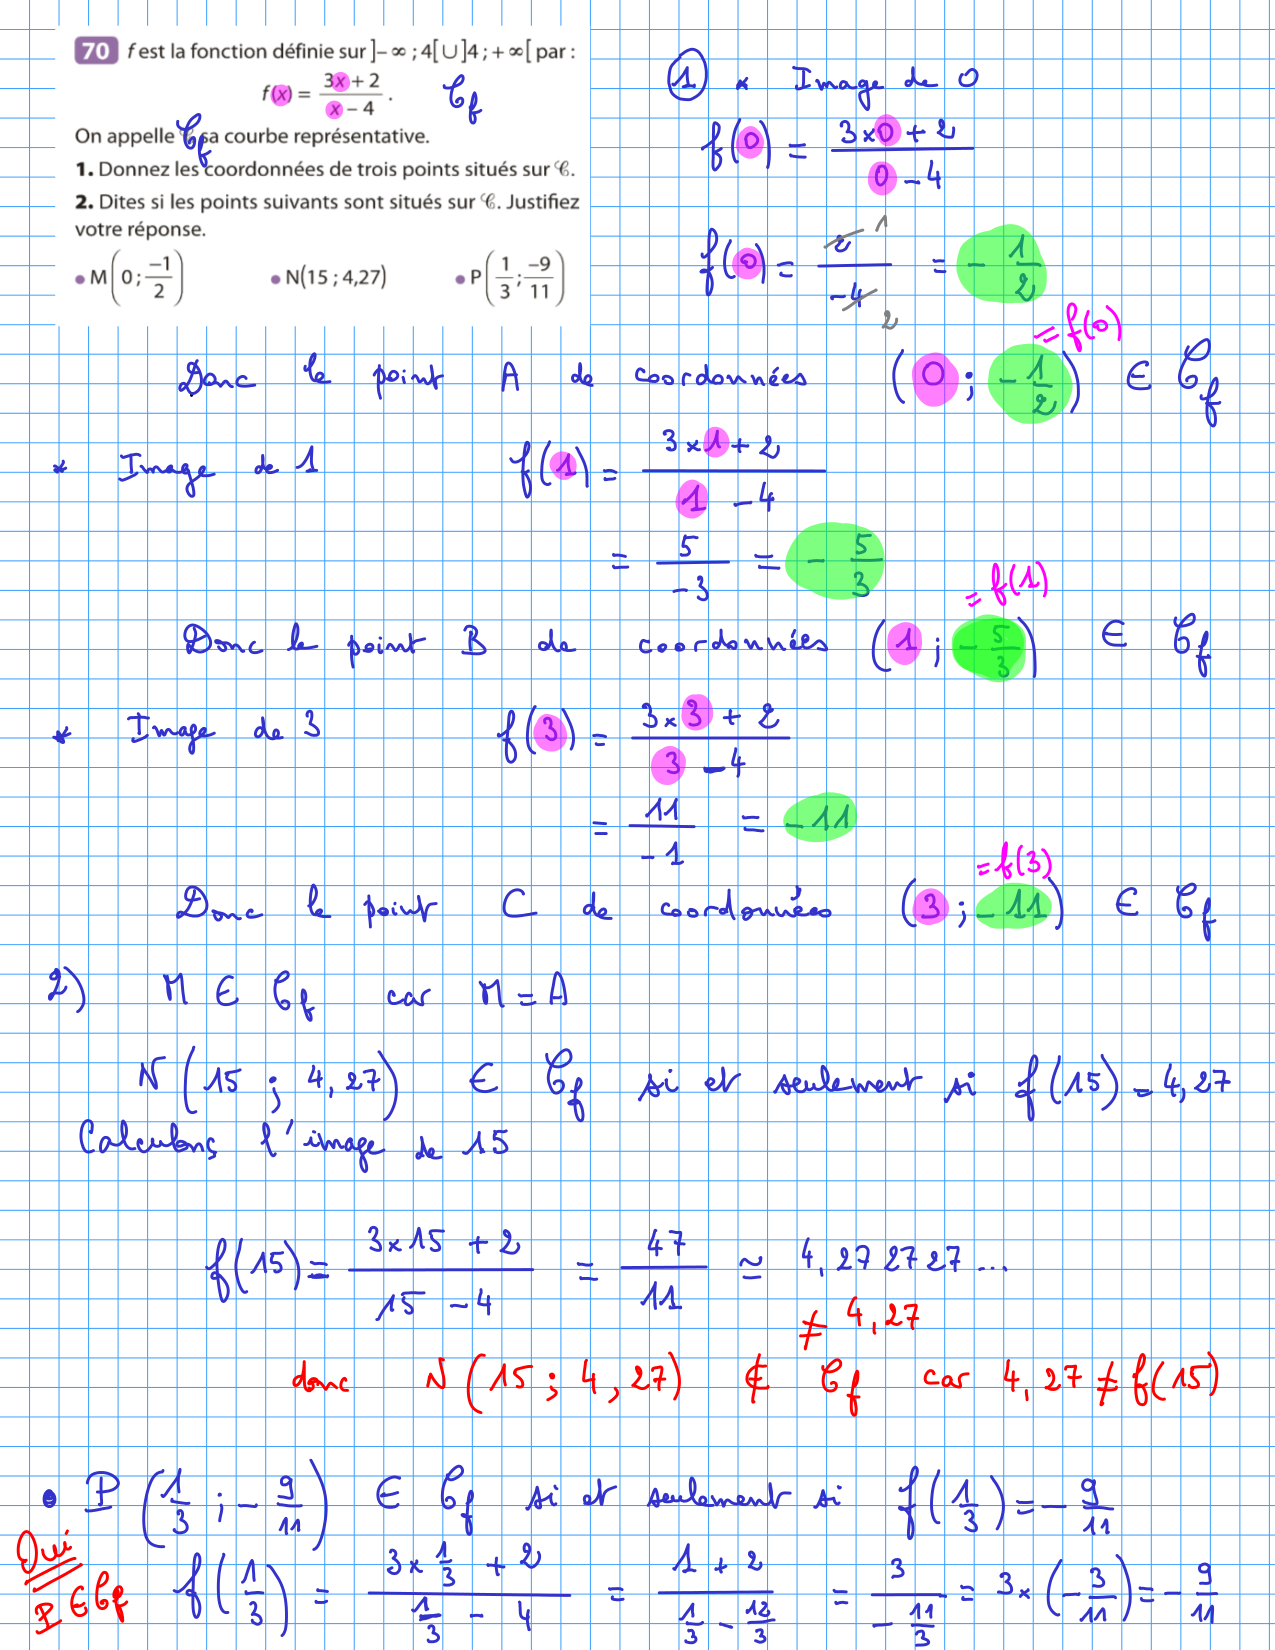 70 f est la fonction définie sur ]– ∞ ; 4[ ∪ ]4 ; + ∞[ par :
f(x) = (3x + 2)/(x – 4) . 𝒞f
On appelle 𝒞f sa courbe représentative.
1. Donnez les coordonnées de trois points situés sur 𝒞.
2. Dites si les points suivants sont situés sur 𝒞. Justifiez
votre réponse.
• M(0 ; –1/2) • N(15 ; 4,27) • P(1/3 ; –9/11)
① * Image de 0
f(0) = (3×0 + 2)/(0 – 4)
f(0) = 2/–4 = – 1/2
1
2
= f(0)
Donc le point A de coordonnées (0 ; – 1/2) ∈ 𝒞f
* Image de 1 f(1) = (3×1 + 2)/(1 – 4)
= 5/–3 = – 5/3
= f(1)
Donc le point B de coordonnées (1 ; – 5/3) ∈ 𝒞f
* Image de 3 f(3) = (3×3 + 2)/(3 – 4)
= 11/–1 = –11
= f(3)
Donc le point C de coordonnées (3 ; –11) ∈ 𝒞f
2) M ∈ 𝒞f car M = A
N (15 ; 4,27) ∈ 𝒞f si et seulement si f(15) = 4,27
Calculons l'image de 15
f(15) = (3×15 + 2)/(15 – 4) = 47/11 ≃ 4,27 27 27 ...
≠ 4,27
donc N (15 ; 4,27) ∉ 𝒞f car 4,27 ≠ f(15)
• P (1/3 ; – 9/11) ∈ 𝒞f si et seulement si f(1/3) = – 9/11
Oui
P ∈ 𝒞f
f(1/3) = (3× 1/3 + 2)/(1/3 – 4) = (1 + 2)/(1/3 – 12/3) = 3/(– 11/3) = 3×(– 3/11) = – 9/11